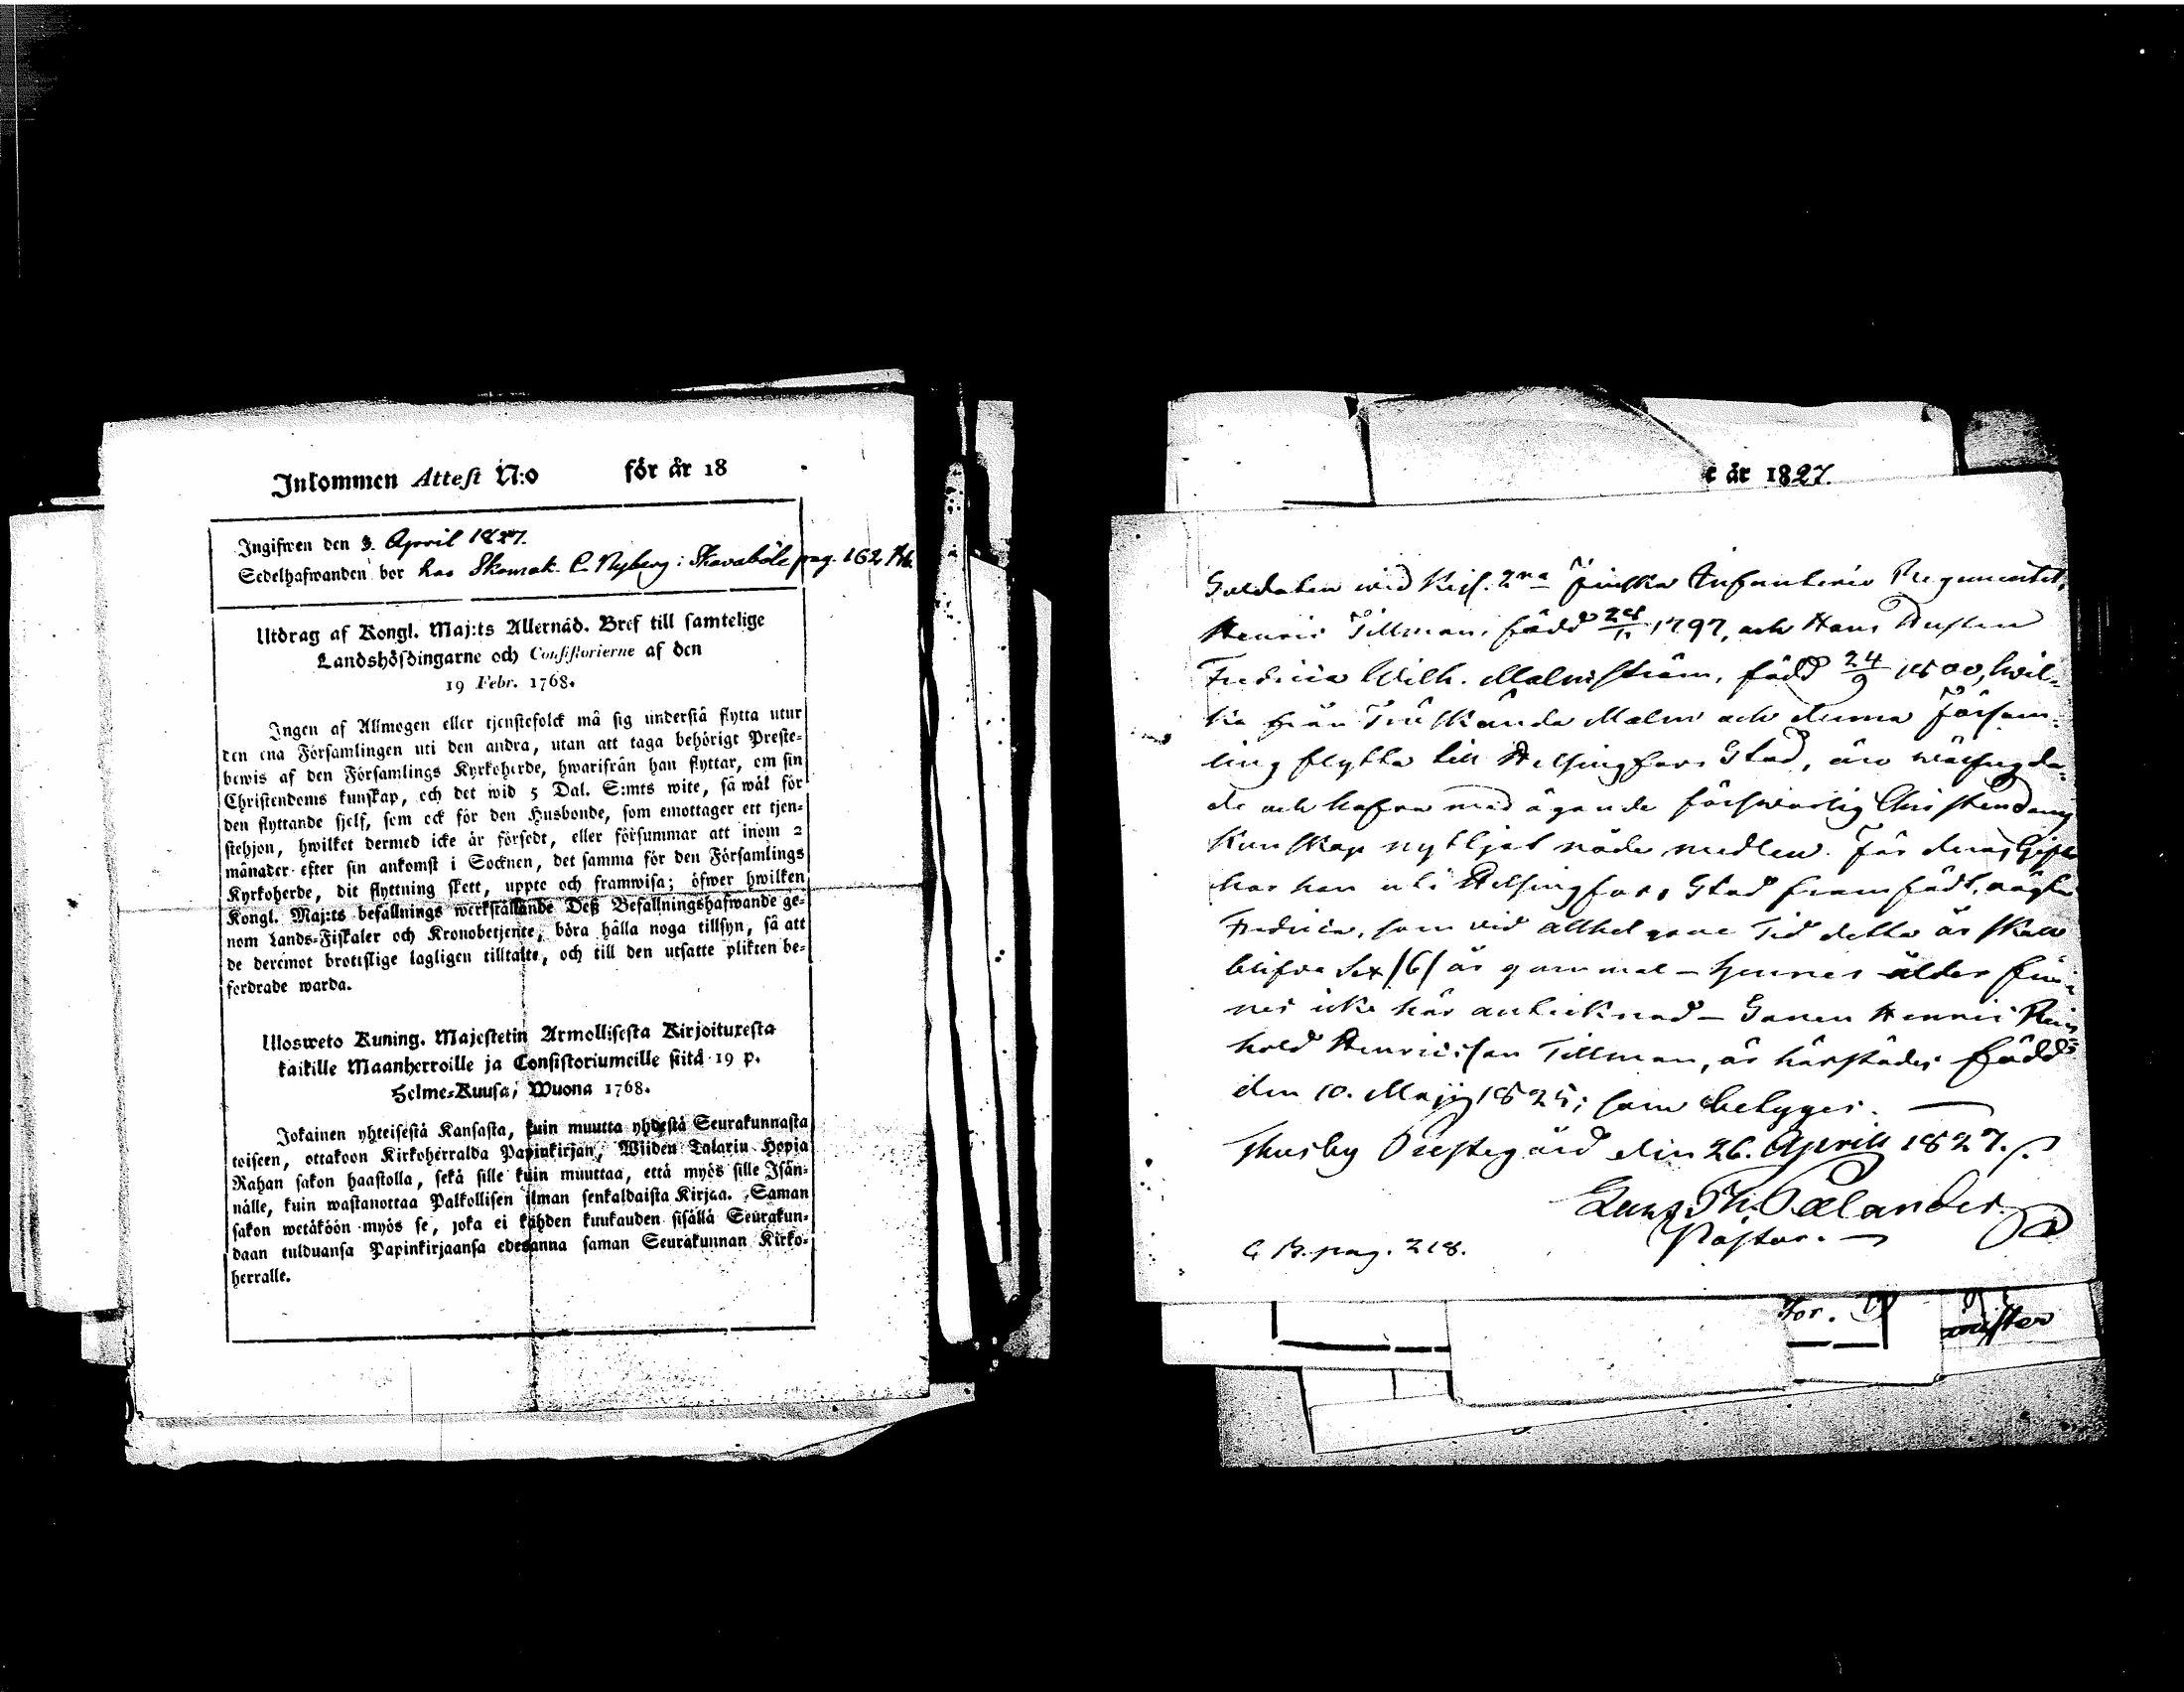 Inkommen Attest N:o för år 18
Ingifwen den 3. April 1827.
Sedelhafwanden bor hos Skomak. C. Nyberg i Skavaböle pag. 162
Utdrag af Kongl. Maj:ts Allernåd. Bref till samtelige
Landshöfdingarne och Consistorierne af den
19 Febr. 1768.
Ingen af Allmogen eller tjenstefolck må sig understå flytta utur
den ena Församlingen uti den andra, utan att taga behörigt Preste-
bewis af den Församlings Kyrkoherde, hwarifrån han flyttar, om sin
Christendoms kunskap, och det wid 5 Dal. S:mts wite, så wäl för
den flyttande sjelf, som ock för den Husbonde, som emottager ett tjen-
stehjon, hwilket dermed icke är försedt, eller försummar att inom 2
månader efter sin ankomst i Socknen, det samma för den Församlings
Kyrkoherde, dit flyttning skett, uppte och framwisa; öfwer hwilken
Kongl. Maj:ts befallnings werkställande Deß Befallningshafwande ge-
nom Lands-Fiskaler och Kronobetjente, böra hålla noga tillsyn, så att
de deremot brottslige lagligen tilltalte, och till den utsatte plikten be-
fordrade warda.
Ulosweto Kuning. Majestetin Armollisesta Kirjoituxesta
kaikille Maanherroille ja Consistoriumeille siitä 19 p.
Helme-Kuusa, Wuona 1768.
Jokainen yhteisestä Kansasta, kuin muutta yhdestä Seurakunnasta
toiseen, ottakoon Kirkoherralda Papinkirjan, Wiiden Talarin Hopia
Rahan sakon haastolla, sekä sille kuin muuttaa, että myös sille Isän-
nälle, kuin wastanottaa Palkollisen ilman senkaldaista Kirjaa. Saman
sakon wetäköön myös se, joka ei kahden kuukauden sisällä Seurakun-
daan tulduansa Papinkirjaansa edesanna saman Seurakunnan Kirko-
herralle.
år 1827.
Soldaten wid Kejs. 2na Finska Infanterie Regimentet,
Henric Tillman, född 1797, och Hans Hustru
Fredrica Wilh. Malmström, född 24/9 1800, hwil-
ka från Träskända Malm och denna Försam-
ling flytta till Helsingfors Stad, äro
de och hafva med ägande försvarlig Christendoms
Kunskap nyttjat nådemedlen. För deras Gifte
har hon uti Helsingfors Stad framfödt
Fredrica, som vid allhelgona Tid detta år skall
blifva Sex /6/ år gammal - hennes ålder fin-
nes icke här antecknad - Sonen Henric Rein
hold Henricsson Tillman, är härstädes född
den 10. Maji 1825; som betyges.
Thusby Prestegård den 26. Aprill 1827.
Palander
Pastor.
C B. pag. 218.
tor.